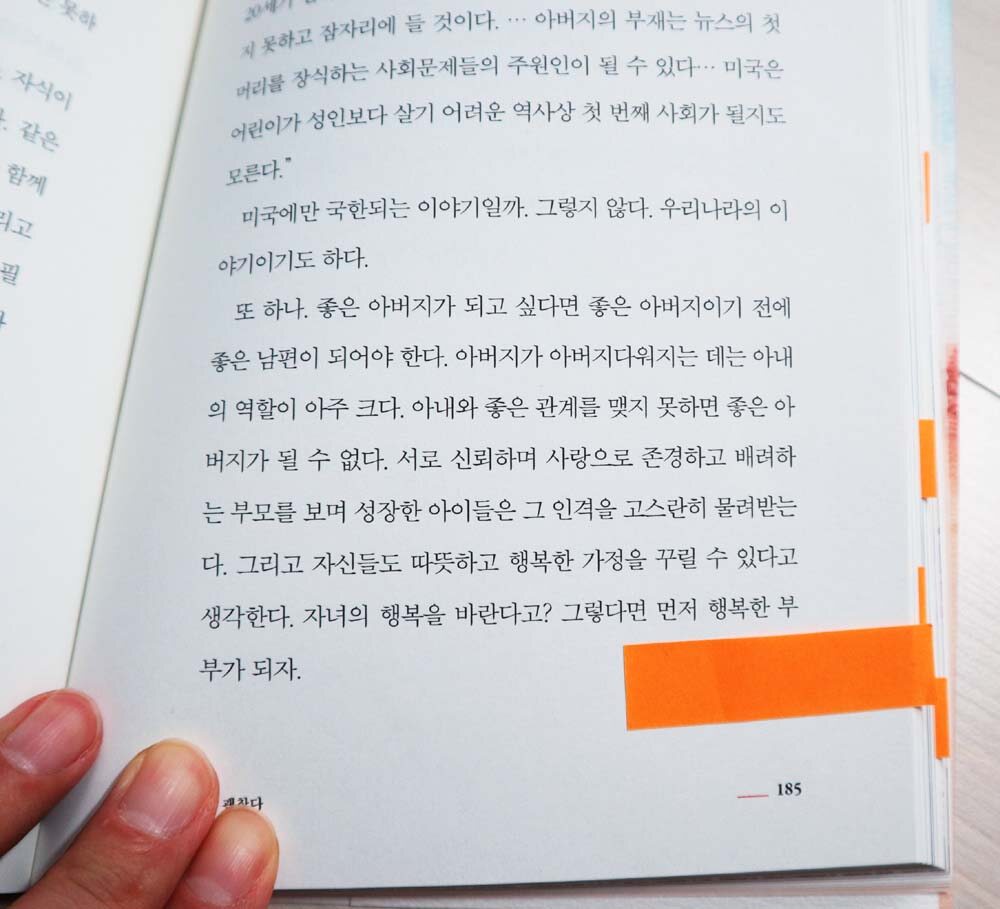 은 못하
자식이
같은
함께
리고
필
20세기
지 못하고 잠자리에 들 것이다. … 아버지의 부재는 뉴스의 첫
머리를 장식하는 사회문제들의 주원인이 될 수 있다… 미국은
어린이가 성인보다 살기 어려운 역사상 첫 번째 사회가 될지도
모른다.”
미국에만 국한되는 이야기일까. 그렇지 않다. 우리나라의 이
야기이기도 하다.
또 하나. 좋은 아버지가 되고 싶다면 좋은 아버지이기 전에
좋은 남편이 되어야 한다. 아버지가 아버지다워지는 데는 아내
의 역할이 아주 크다. 아내와 좋은 관계를 맺지 못하면 좋은 아
버지가 될 수 없다. 서로 신뢰하며 사랑으로 존경하고 배려하
는 부모를 보며 성장한 아이들은 그 인격을 고스란히 물려받는
다. 그리고 자신들도 따뜻하고 행복한 가정을 꾸릴 수 있다고
생각한다. 자녀의 행복을 바란다고? 그렇다면 먼저 행복한 부
부가 되자.
괜찮다
185